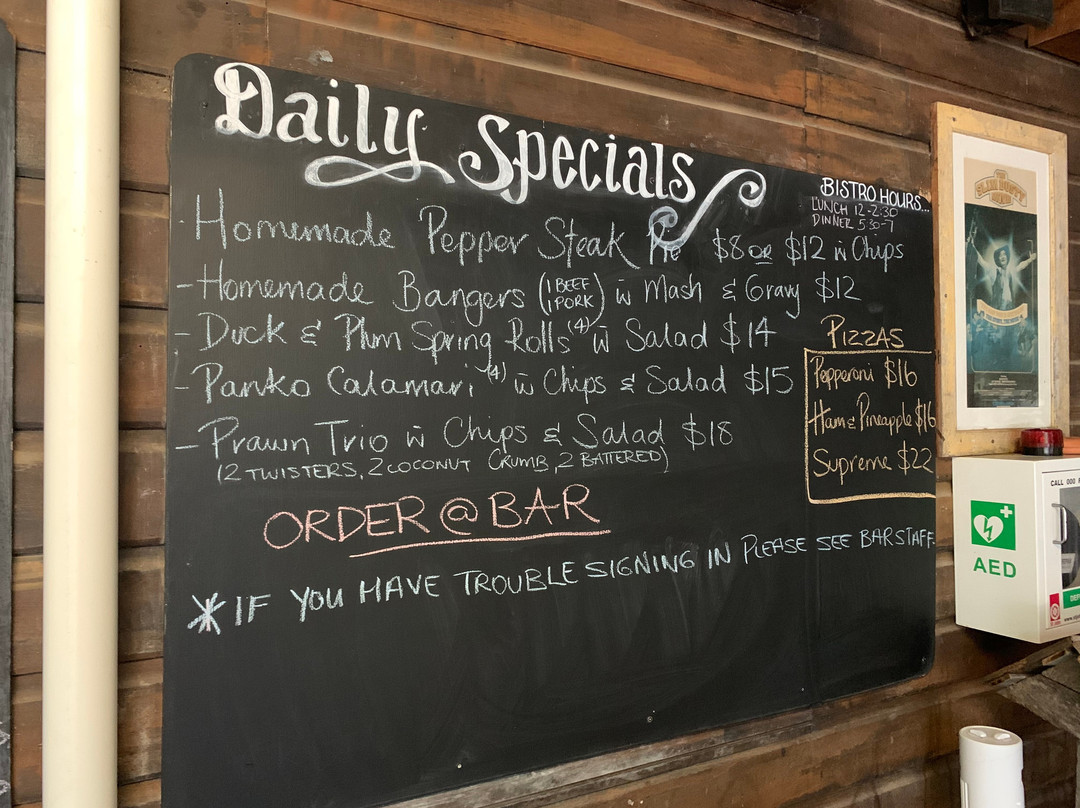 Daily Specials
BISTRO HOURS...
LUNCH 12-2:30
DINNER 5:30-7
- Homemade Pepper Steak Pie $8 or $12 w Chips
- Homemade Bangers (1 BEEF 1 PORK) w Mash & Gravy $12
- Duck & Plum Spring Rolls (4) w Salad $14
- Panko Calamari (4) w Chips & Salad $15
- Prawn Trio w Chips & Salad $18
(2 TWISTERS, 2 COCONUT CRUMB, 2 BATTERED)
PIZZAS
Pepperoni $16
Ham & Pineapple $16
Supreme $22
ORDER @ BAR
* IF YOU HAVE TROUBLE SIGNING IN PLEASE SEE BARSTAFF.
THE
SLIM DUSTY
CALL 000
AED